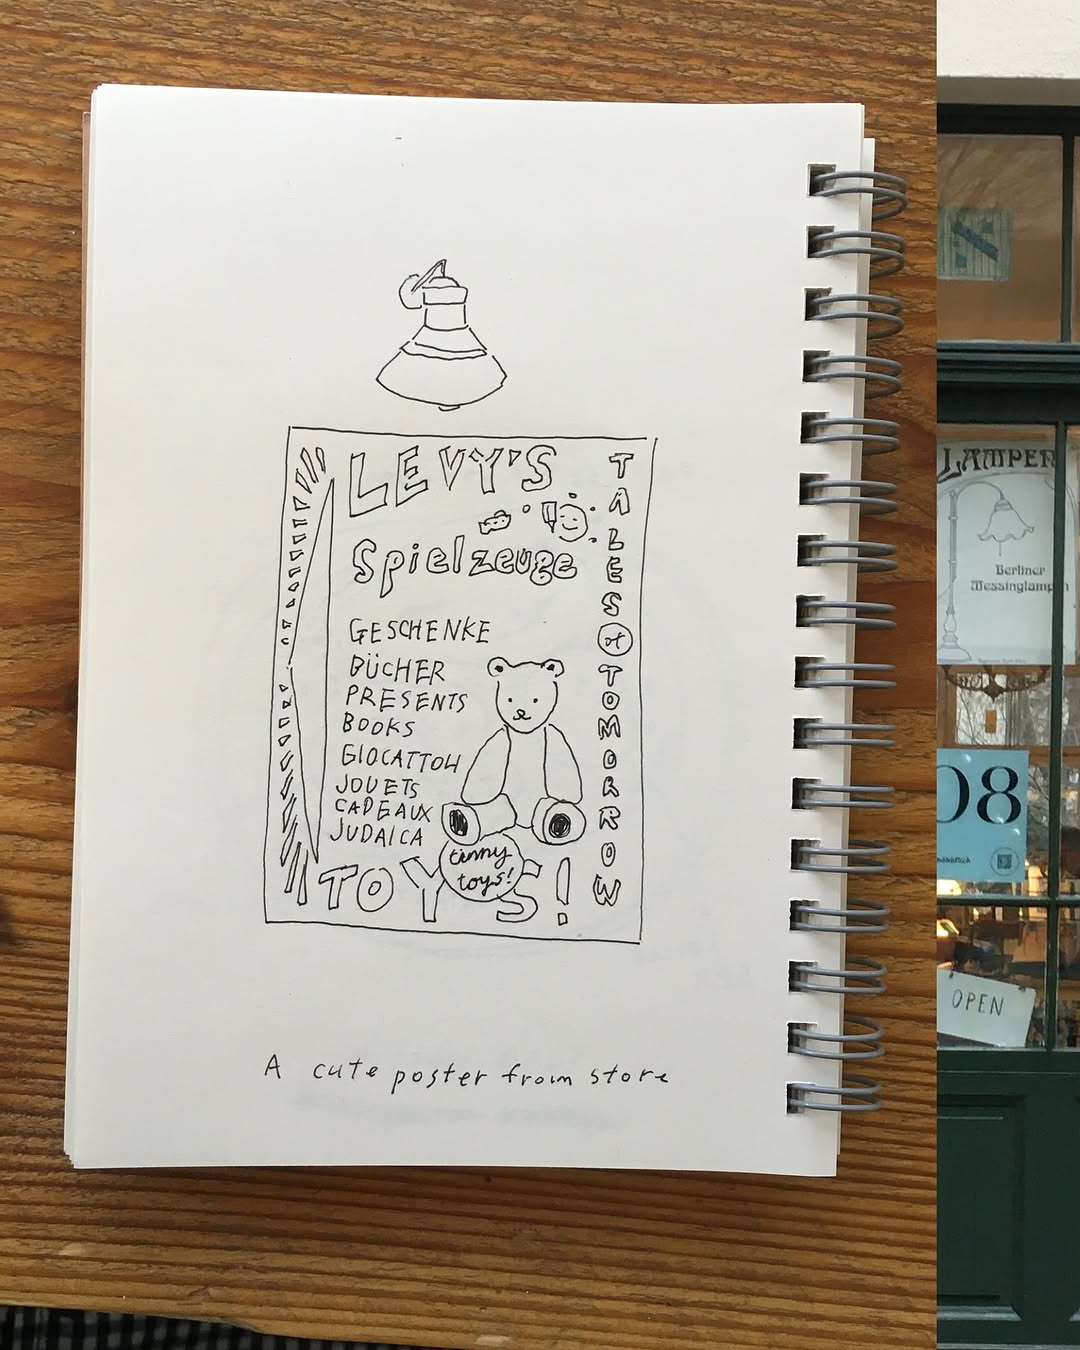 LEVY'S
Spielzeuge
GESCHENKE
BÜCHER
PRESENTS
BOOKS
GIOCATTOLI
JOUETS
CADEAUX
JUDAICA
TOYS!
tenny
toys!
TALES of TOMORROW
A cute poster from store
LAMPEN
Berliner
Messinglampen
08
OPEN